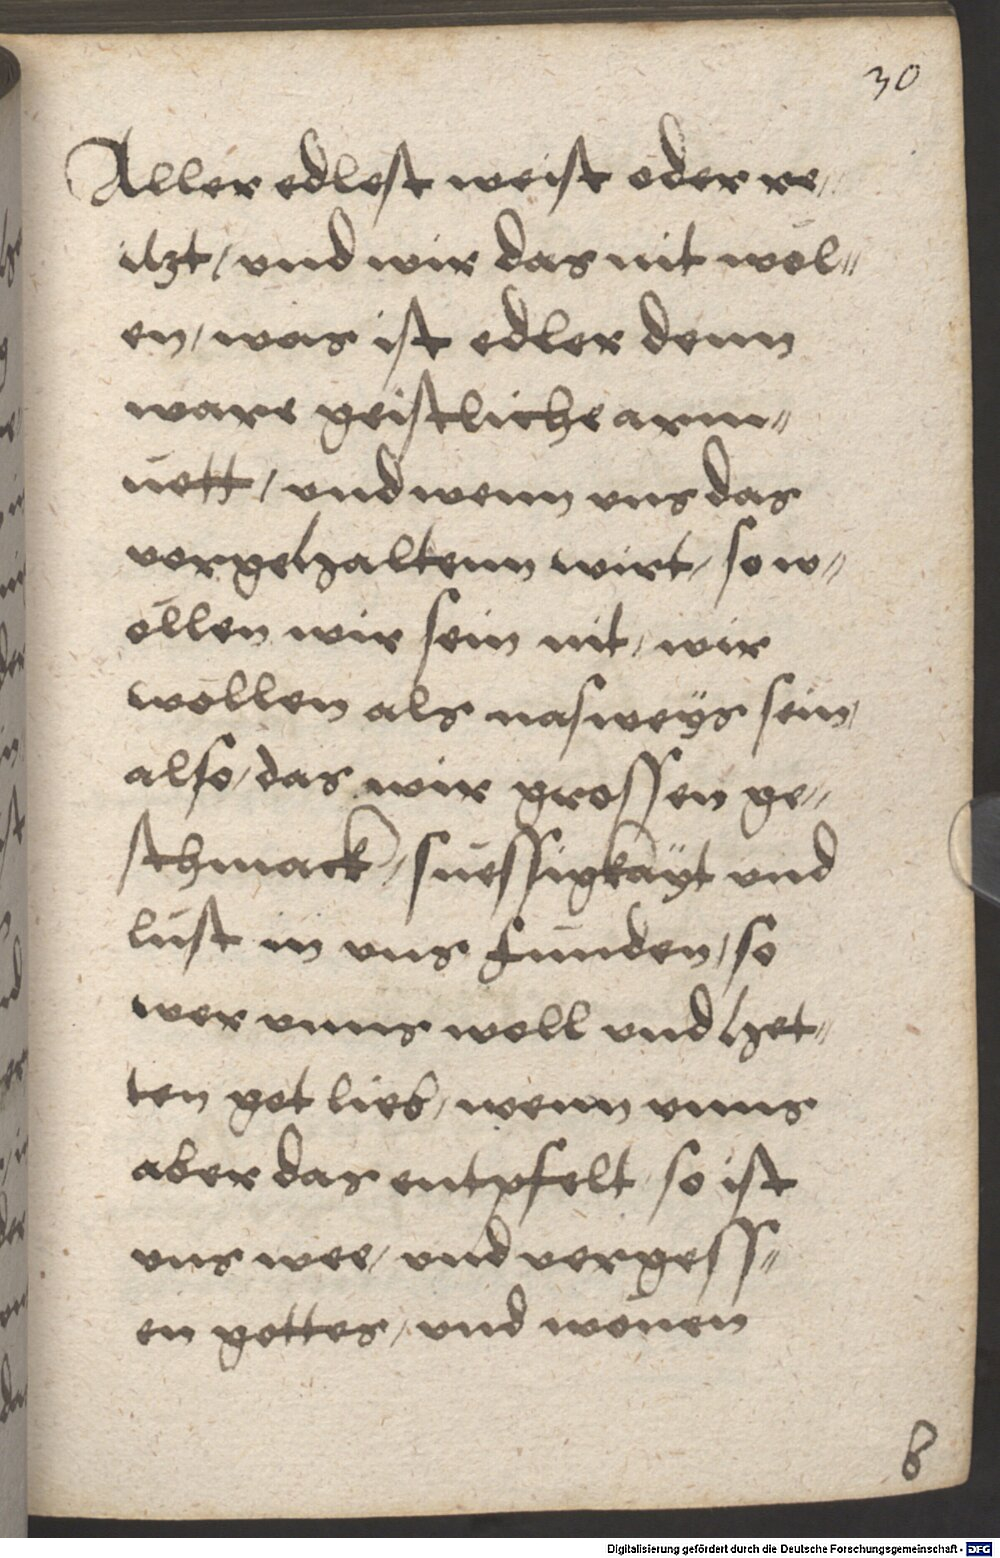 30
Aller edlest weist oder re/
itzt / vnd wir das nit wöl⸗
en / was ist edler denn
ware geistliche arm⸗
uett / vnd wenn vns das
vorgehaltenn wirt / so w⸗
öllen wir sein nit / wir
wöllen als nasweÿs sein /
also / das wir grossen ge⸗
schmack / suessigkaÿt vnd
lust in vns funden / so
wer vnns woll vnd het⸗
ten got lieb / wenn vnns
aber das entpfelt / so ist
vns wee / vnd vergess⸗
en gottes / vnd wönen
b
Digitalisierung gefördert durch die Deutsche Forschungsgemeinschaft - DFG